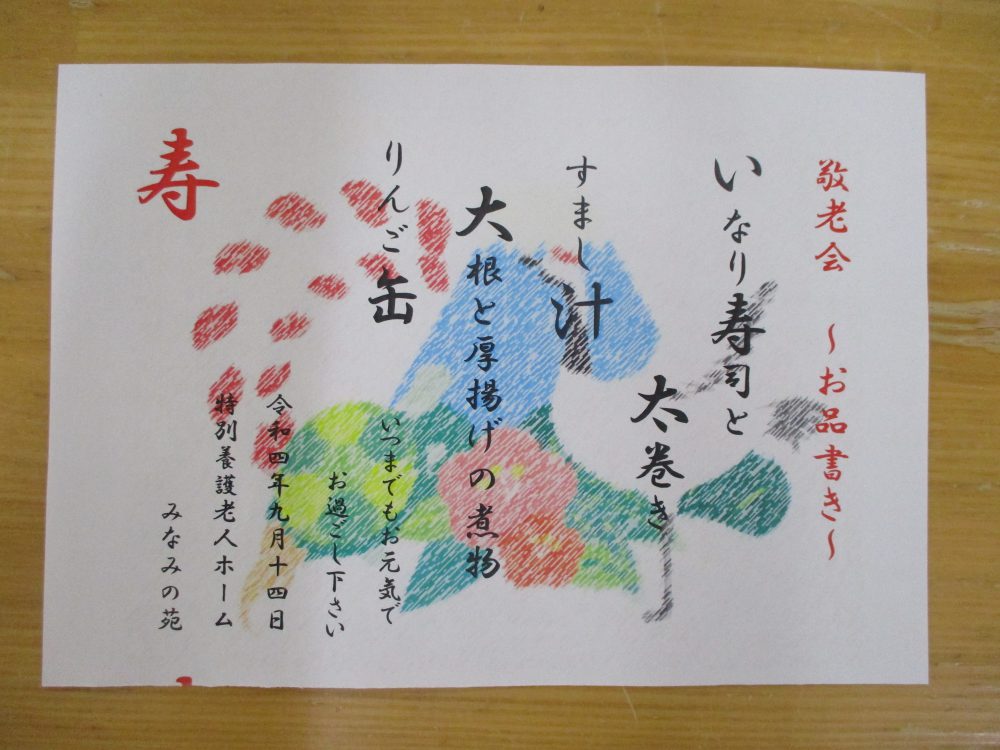 敬老会 ～お品書き～
いなり寿司と
太巻き
すまし汁
大根と厚揚げの煮物
りんご缶
いつまでもお元気で
お過ごし下さい
令和四年九月十四日
特別養護老人ホーム
みなみの苑
寿